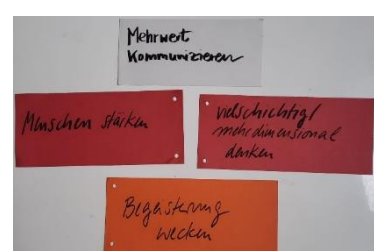 Mehrwert
Kommunizieren
Menschen stärken
vielschichtig/
mehrdimensional
denken
Begeisterung
wecken